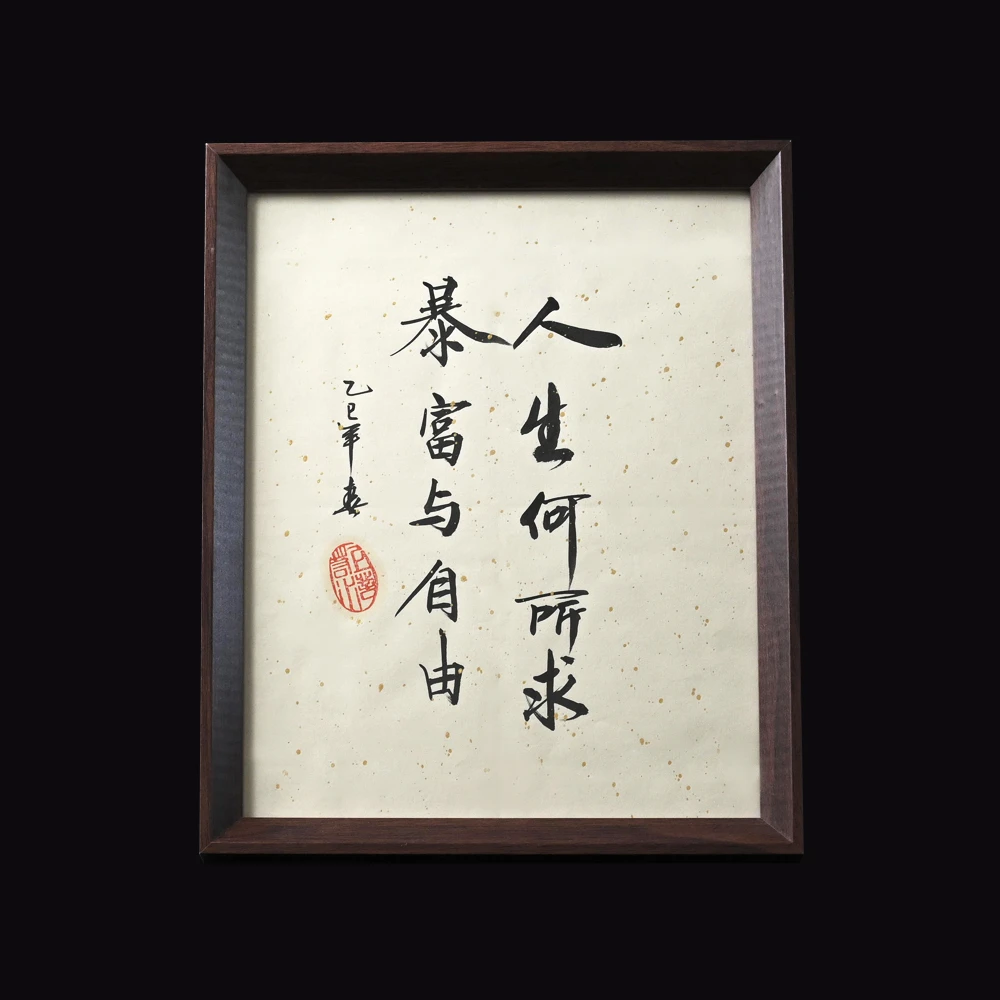 人生何所求
暴富与自由
乙巳年春